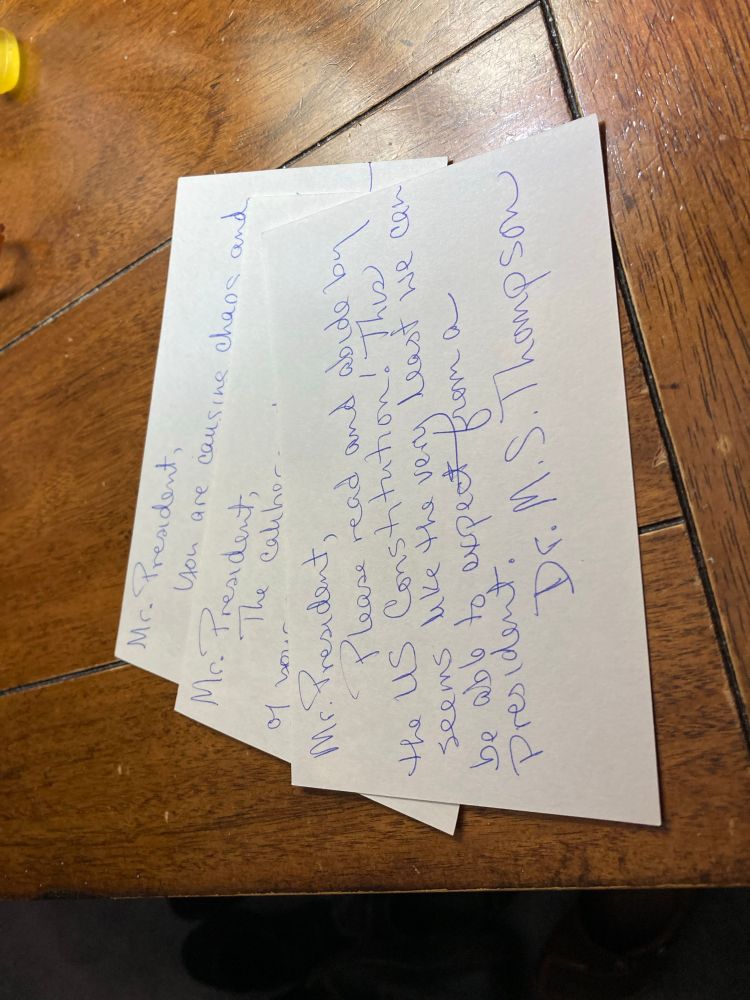 Mr. President,
You are causing chaos and
Mr. President,
The
of your
Mr. President,
Please read and abide by
the US Constitution! This
seems like the very least we can
be able to expect from a
president.
Dr. M.S. Thompson